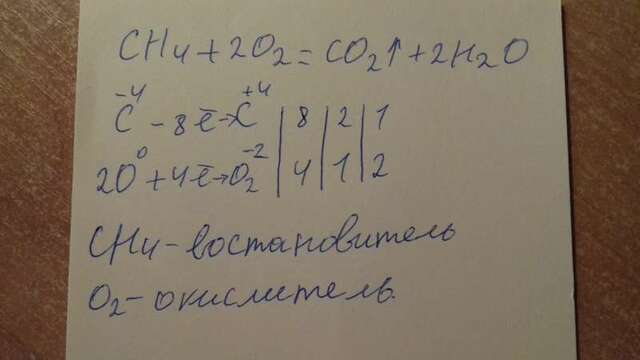 CH4 + 2O2 = CO2↑ + 2H2O
C⁻⁴ - 8ē → C⁺⁴ | 8 | 2 | 1
2O⁰ + 4ē → O2⁻² | 4 | 1 | 2
CH4 - востановитель
O2 - окислитель.